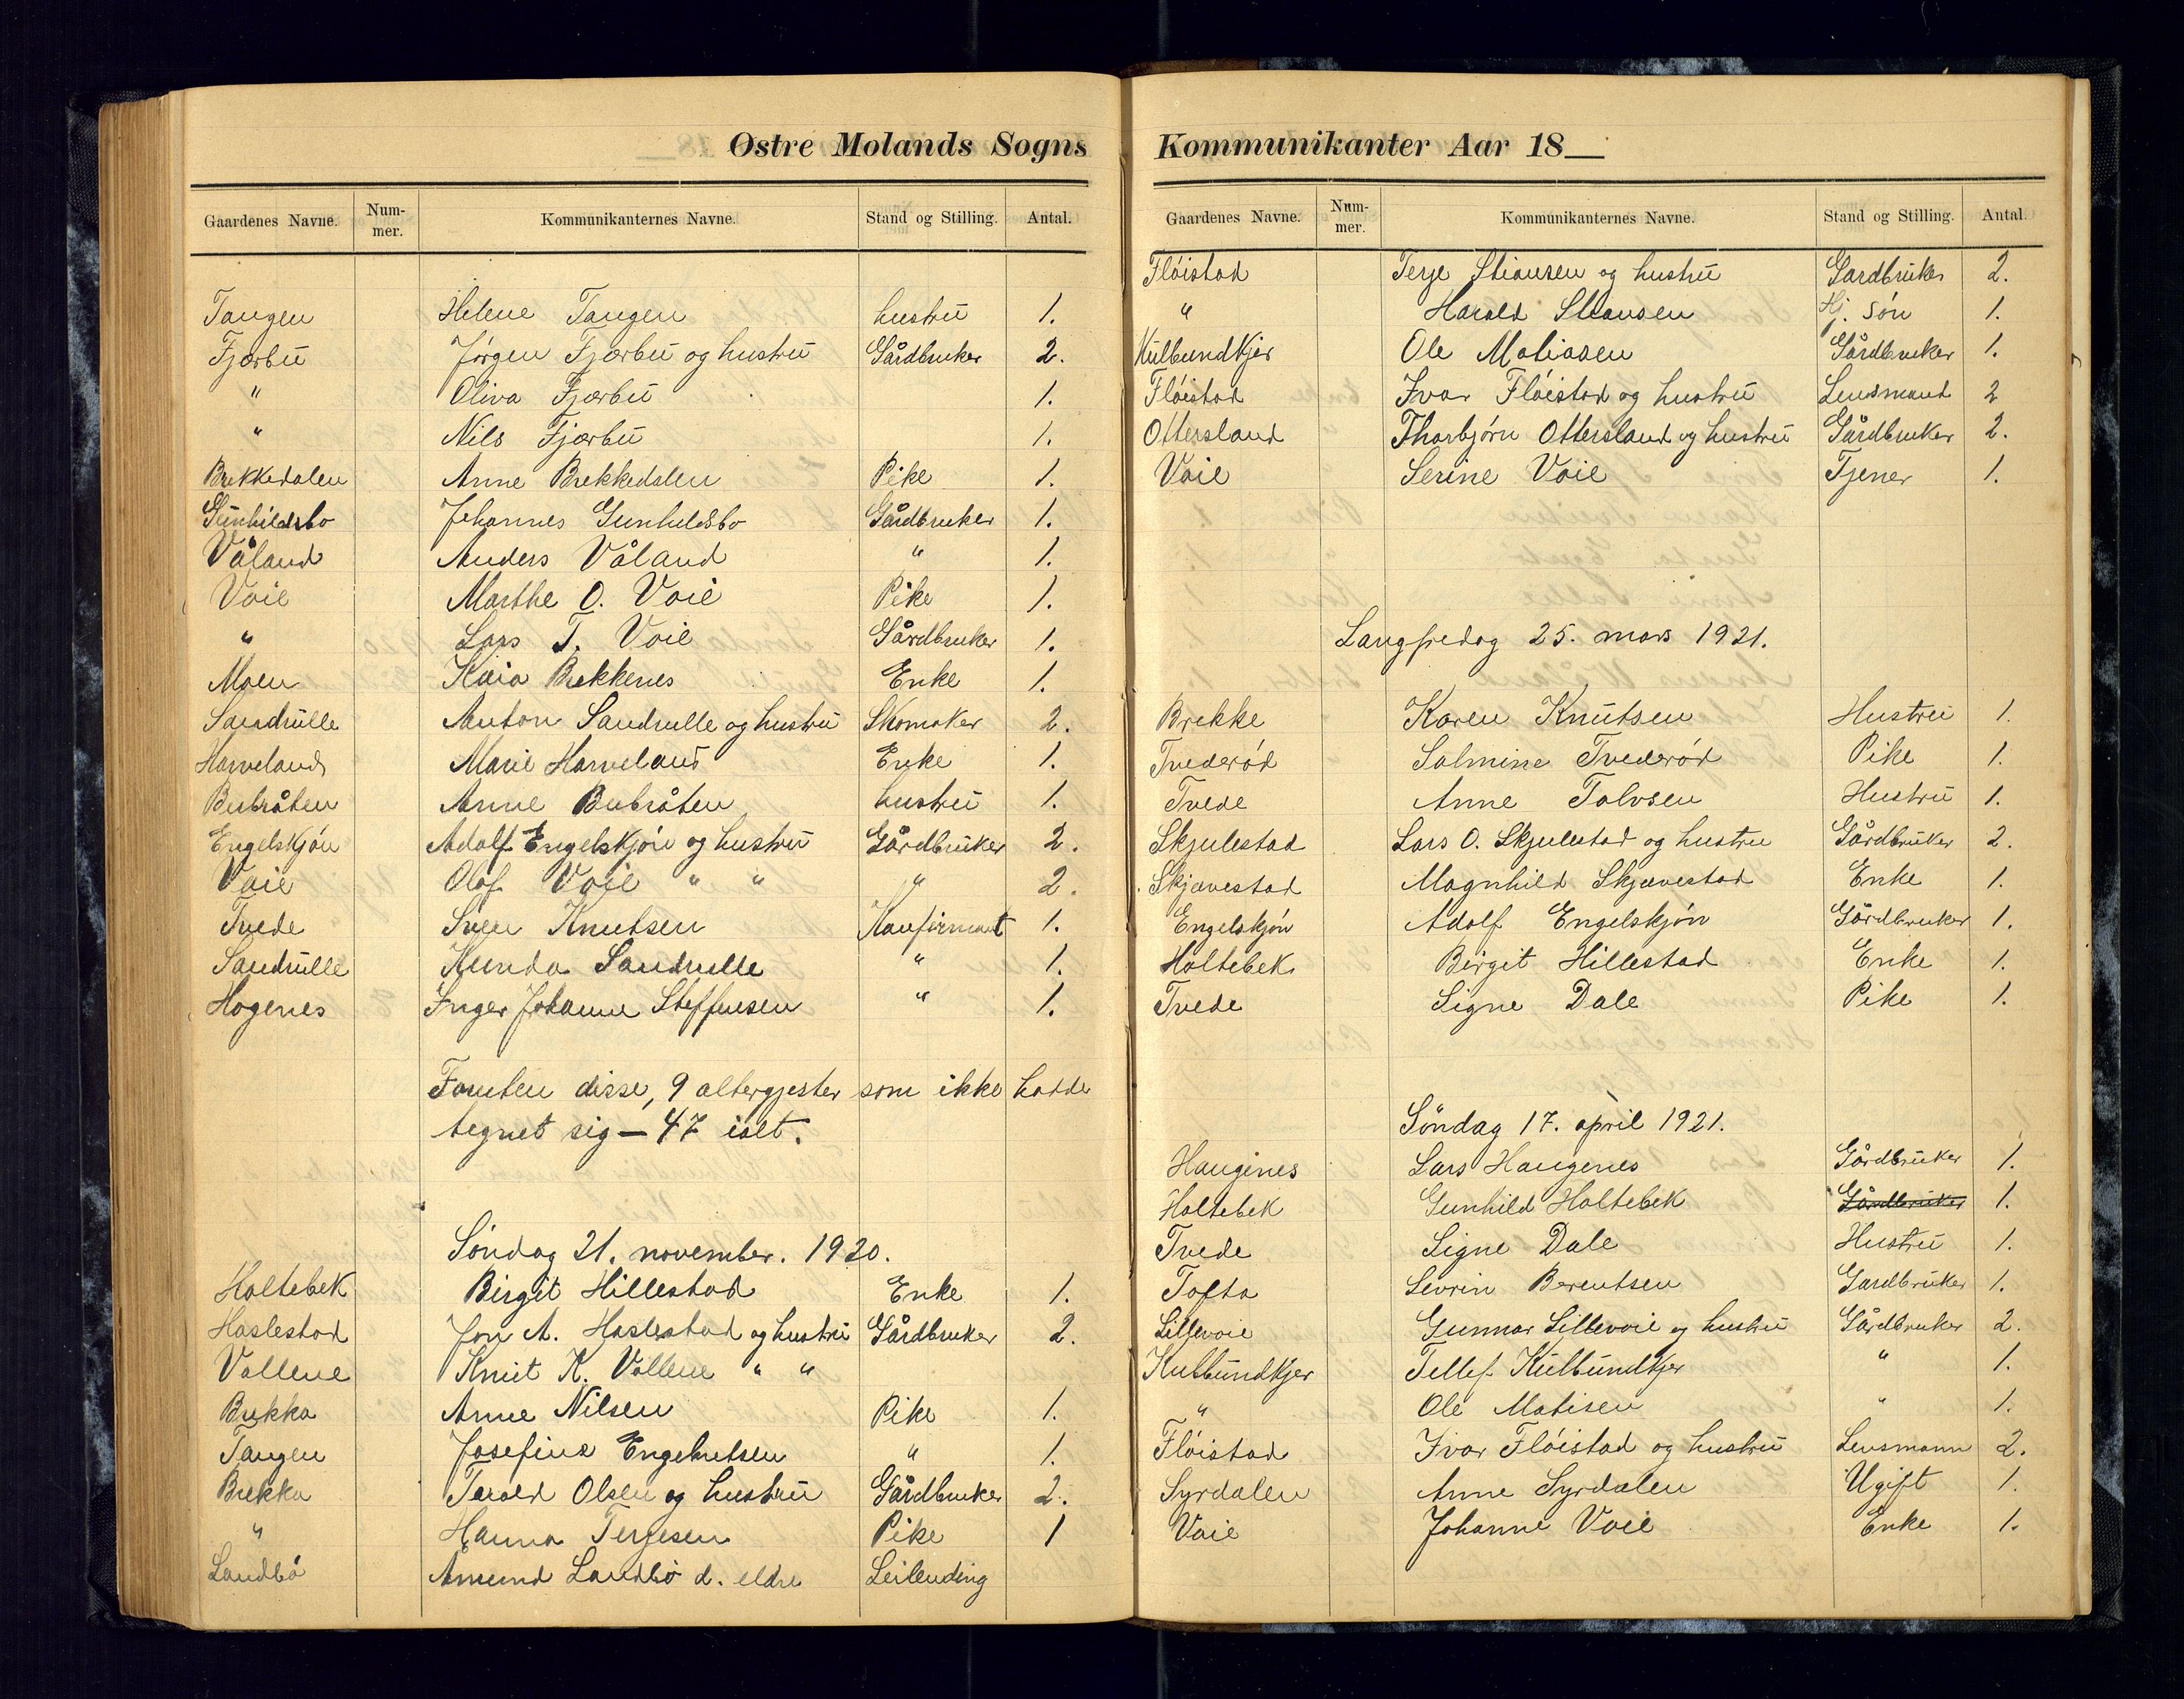 Østre Molands Sogns
Gaardenes Navne. Num-mer. Kommunikanternes Navne. Stand og Stilling. Antal.
Tangen Helene Tangen hustru 1.
Fjærbu Jørgen Fjærbu og hustru Gårdbruker 2.
" Oliva Fjærbu 1.
" Nils Fjærbu 1.
Brekkedalen Anne Brekkedalen Pike 1.
Gunhildsbo Johannes Gunhildsbo Gårdbruker 1.
Våland Anders Våland " 1.
Voie Marthe O. Voie Pike 1.
" Lars T. Voie Gårdbruker 1.
Moen Kaia Brekkenes Enke 1.
Sandrulle Anton Sandrulle og hustru Skomaker 2.
Harveland Marie Harveland Enke 1.
Bubråten Anne Bubråten hustru 1.
Engelskjøn Adolf Engelskjøn og hustru Gårdbruker 2.
Voie Olaf Voie " " " 2.
Tvede Sven Knutsen Konfirmant 1.
Sandrulle Kunda Sandrulle " 1.
Hogenes Inger Johanne Steffensen " 1.
Foruten disse, 9 altergjester som ikke hadde
tegnet sig — 47 ialt.
Søndag 21. november. 1920.
Holtebek Birgit Hillestad Enke 1.
Haslestad Jon A. Haslestad og hustru Gårdbruker 2.
Vallene Knut K. Vallene " "
Brekka Anne Nilsen Pike 1.
Tangen Josefine Engebretsen " 1.
Brekka Tarald Olsen og hustru Gårdbruker 2.
" Hanna Terjesen Pike 1
Landbø Åmund Landbø d. eldre Leilending
Kommunikanter Aar 18__
Gaardenes Navne. Num-mer. Kommunikanternes Navne. Stand og Stilling. Antal.
Fløistad Terje Stiansen og hustru Gardbruker 2.
" Harald Stiansen Hj. søn 1.
Kulbundkjer Ole Matiasen Gårdbruker 1.
Fløistad Ivar Fløistad og hustru Lensmand 2
Ottersland Thorbjørn Ottersland og hustru Gårdbruker 2.
Voie Serine Voie Tjener 1.
Langfredag 25. mars 1921.
Brekke Karen Knutsen Hustru 1.
Tvederød Salmine Tvederød Pike 1.
Tvede Anne Talvsen Hustru 1.
Skjulestad Lars O. Skjulestad og hustru Gårdbruker 2.
Skjævestad Magnhild Skjævestad Enke 1.
Engelskjøn Adolf Engelskjøn Gårdbruker 1.
Holtebek Birgit Hillestad Enke 1.
Tvede Signe Dale Pike 1.
Søndag 17. april 1921.
Haugines Lars Haugenes Gårdbruker 1.
Holtebek Gunhild Holtebek Gårdbruker 1.
Tvede Signe Dale Hustru 1.
Tofta Sevrin Berentsen Gardbruker 1.
Lillevoie Gunnar Lillevoie og hustru Gårdbruker 2.
Kulbundkjer Tellef Kulbundkjer " 1.
" Ole Matisen " 1.
Fløistad Ivar Fløistad og hustru Lensmann 2.
Syrdalen Anne Syrdalen Ugift 1.
Voie Johanne Voie Enke 1.